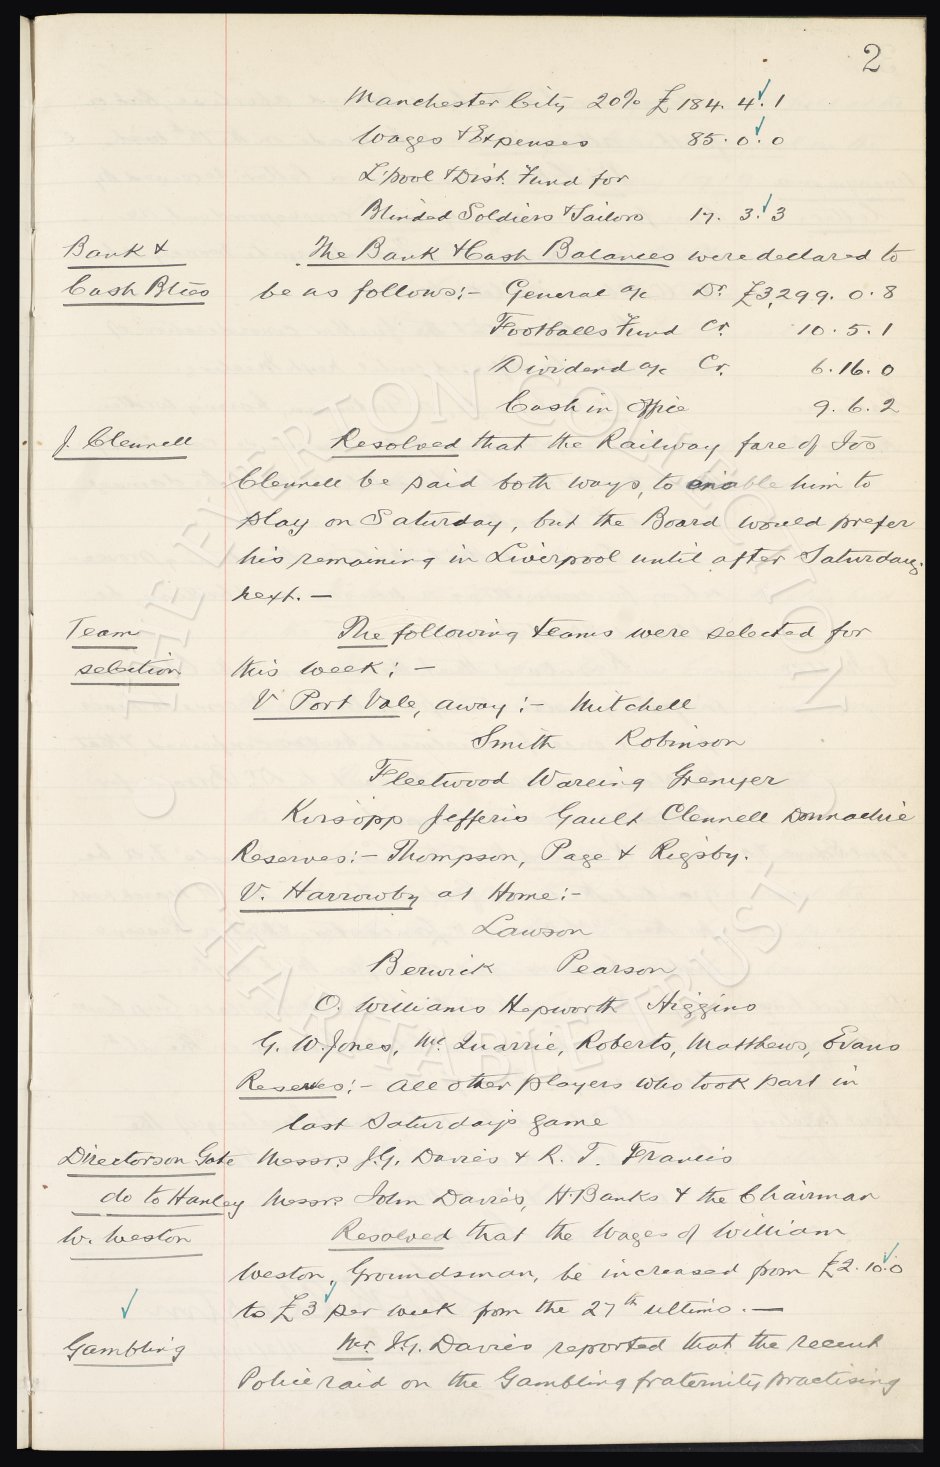 2
Manchester City 20% £184. 4. 1
Wages & Expenses 85. 0. 0
L'pool & Dist. Fund for
Blinded Soldiers & Sailors 17. 3. 3
Bank & The Bank & Cash Balances were declared to
Cash Blces be as follows:- General a/c Dr £3,299. 0. 8
Footballs Fund Cr. 10. 5. 1
Dividend a/c Cr. 6. 16. 0
Cash in Office 9. 6. 2
J. Clennell Resolved that the Railway fare of Jos
Clennell be paid both ways, to enable him to
play on Saturday, but the Board would prefer
his remaining in Liverpool until after Saturday
next. —
Team The following teams were selected for
selection this week: —
V Port Vale, away:- Mitchell
Smith Robinson
Fleetwood Wareing Grenyer
Kirsopp Jefferis Gault Clennell Donnachie
Reserves:- Thompson, Page & Rigsby.
V. Harrowby at Home:-
Lawson
Berwick Pearson
O. Williams Hepworth Higgins
G. W. Jones, Mc Quarrie, Roberts, Matthews, Evans
Reserves:- all other players who took part in
last Saturday's game
Directors on Gate Messrs J.G. Davies & R. T. Francis
do to Hanley Messrs John Davies, H. Banks & the Chairman
W. Weston Resolved that the Wages of William
Weston, Groundsman, be increased from £2. 10. 0
to £3 per week from the 27th ultimo. —
Gambling Mr J.G. Davies reported that the recent
Police raid on the Gambling fraternity practising
THE EVERTON COLLECTION
CHARITABLE TRUST